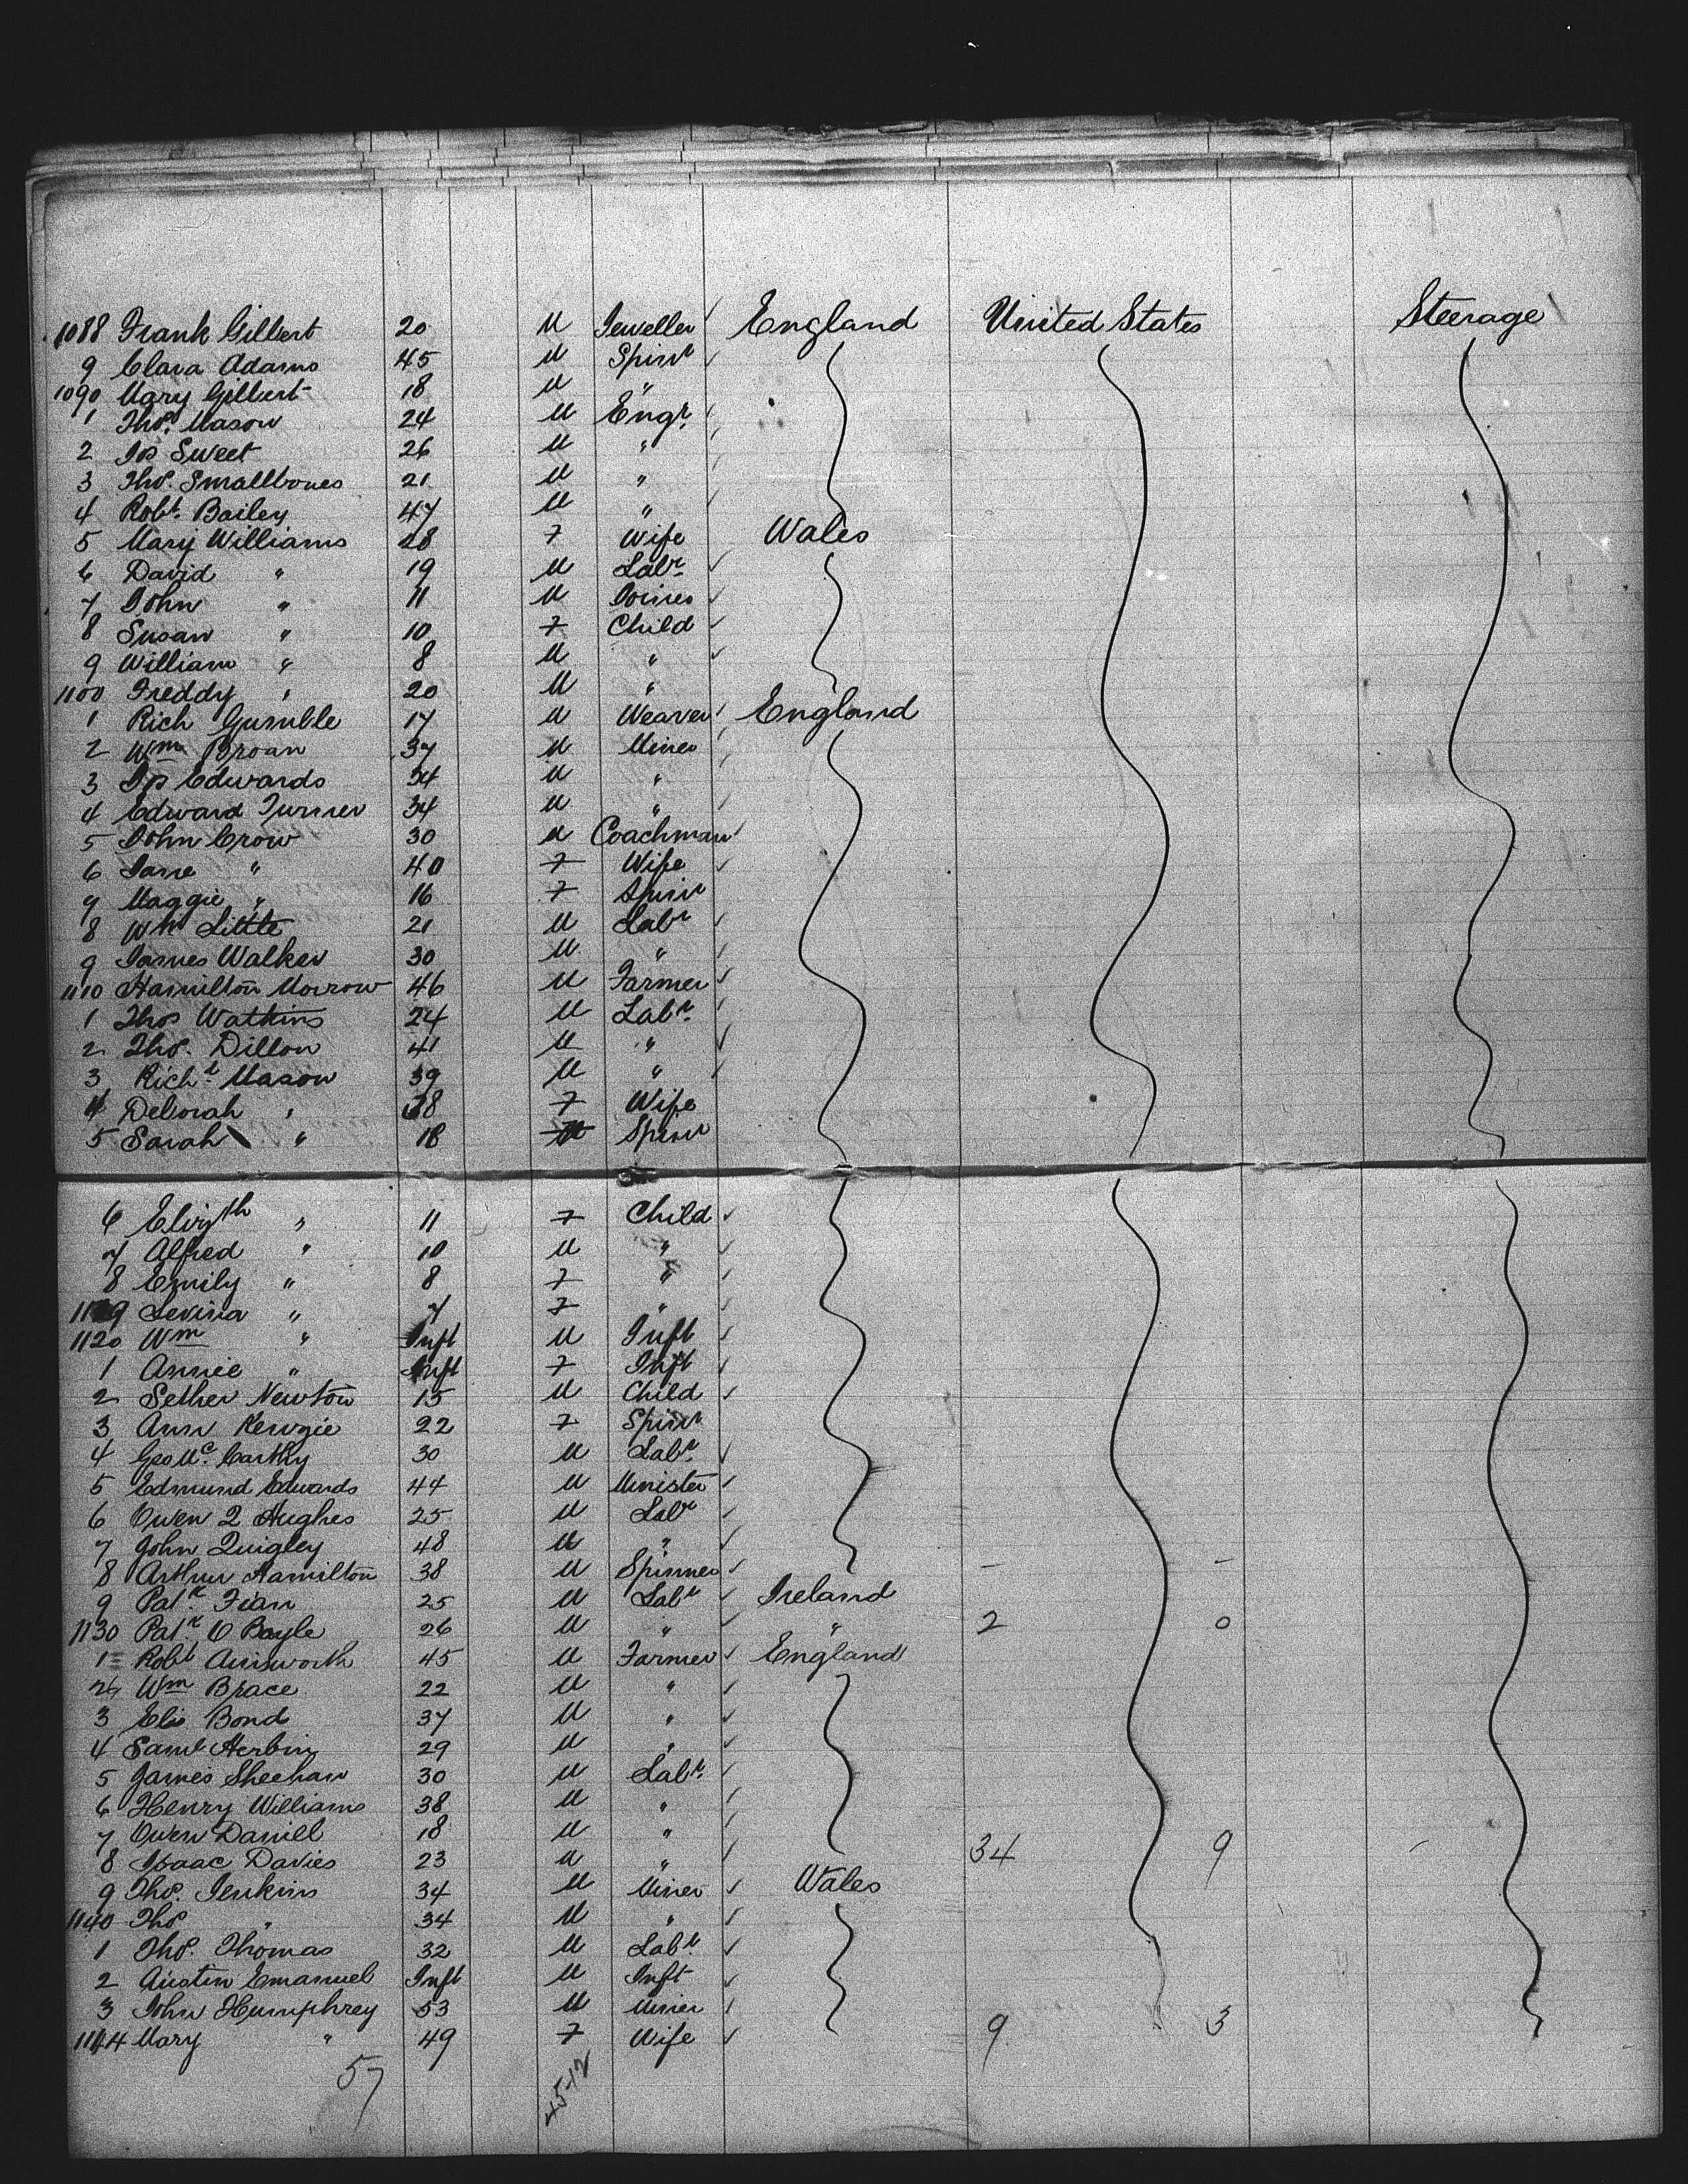 1088 Frank Gilbert 20 M Jeweller England United States Steerage
9 Clara Adams 45 M Spinr
1090 Mary Gilbert 18 M "
1 Thos. Mason 24 M Engr.
2 Jos Sweet 26 M "
3 Thos. Smallbones 21 M "
4 Robt. Bailey 47 M "
5 Mary Williams 28 F Wife Wales
6 David " 19 M Labr.
7 John " 11 M
8 Susan " 10 F Child
9 William " 8 M "
1100 Freddy " 20 M "
1 Rich Gumble 17 M Weaver England
2 Wm Broan 37 M Miner
3 Jos Edwards 34 M "
4 Edward Turner 34 M "
5 John Crow 30 M Coachman
6 Jane " 40 F Wife
7 Maggie " 16 F Spinr
8 Wm Little 21 M Labr
9 James Walker 30 M "
1110 Hamilton Morrow 46 M Farmer
1 Thos Watkins 24 M Labr.
2 Thos. Dillon 41 M "
3 Richd. Mason 39 M "
4 Deborah " 38 F Wife
5 Sarah " 18 F Spinr
6 Elizth " 11 F Child
7 Alfred " 10 M "
8 Emily " 8 F "
1119 Levina " 7 F "
1120 Wm " Inft M Inft
1 Annie " Inft F Inft
2 Sether Newton 15 M Child
3 Ann Kenzie 22 F Spinr
4 Geo Mc. Carthy 30 M Labr.
5 Edmund Edwards 44 M Minister
6 Owen 2 Hughes 25 M Labr
7 John Quigley 48 M "
8 Arthur Hamilton 38 M Spinner - -
9 Patk. Fian 25 M Labr Ireland
1130 Patk O Boyle 26 M " " 2 0
1 Robt Ainsworth 45 M Farmer England
2 Wm Brace 22 M "
3 Eli Bond 37 M "
4 Saml Herbin 29 M "
5 James Sheehan 30 M Labr.
6 Henry Williams 38 M "
7 Owen Daniell 18 M "
8 Isaac Davies 23 M " 34 9
9 Thos. Jenkins 34 M Miner Wales
1140 Thos " 34 M "
1 Thos. Thomas 32 M Labr.
2 Austin Emanuel Inft M Inft
3 John Humphrey 53 M Miner
1144 Mary " 49 F Wife 9 3
57 45-12